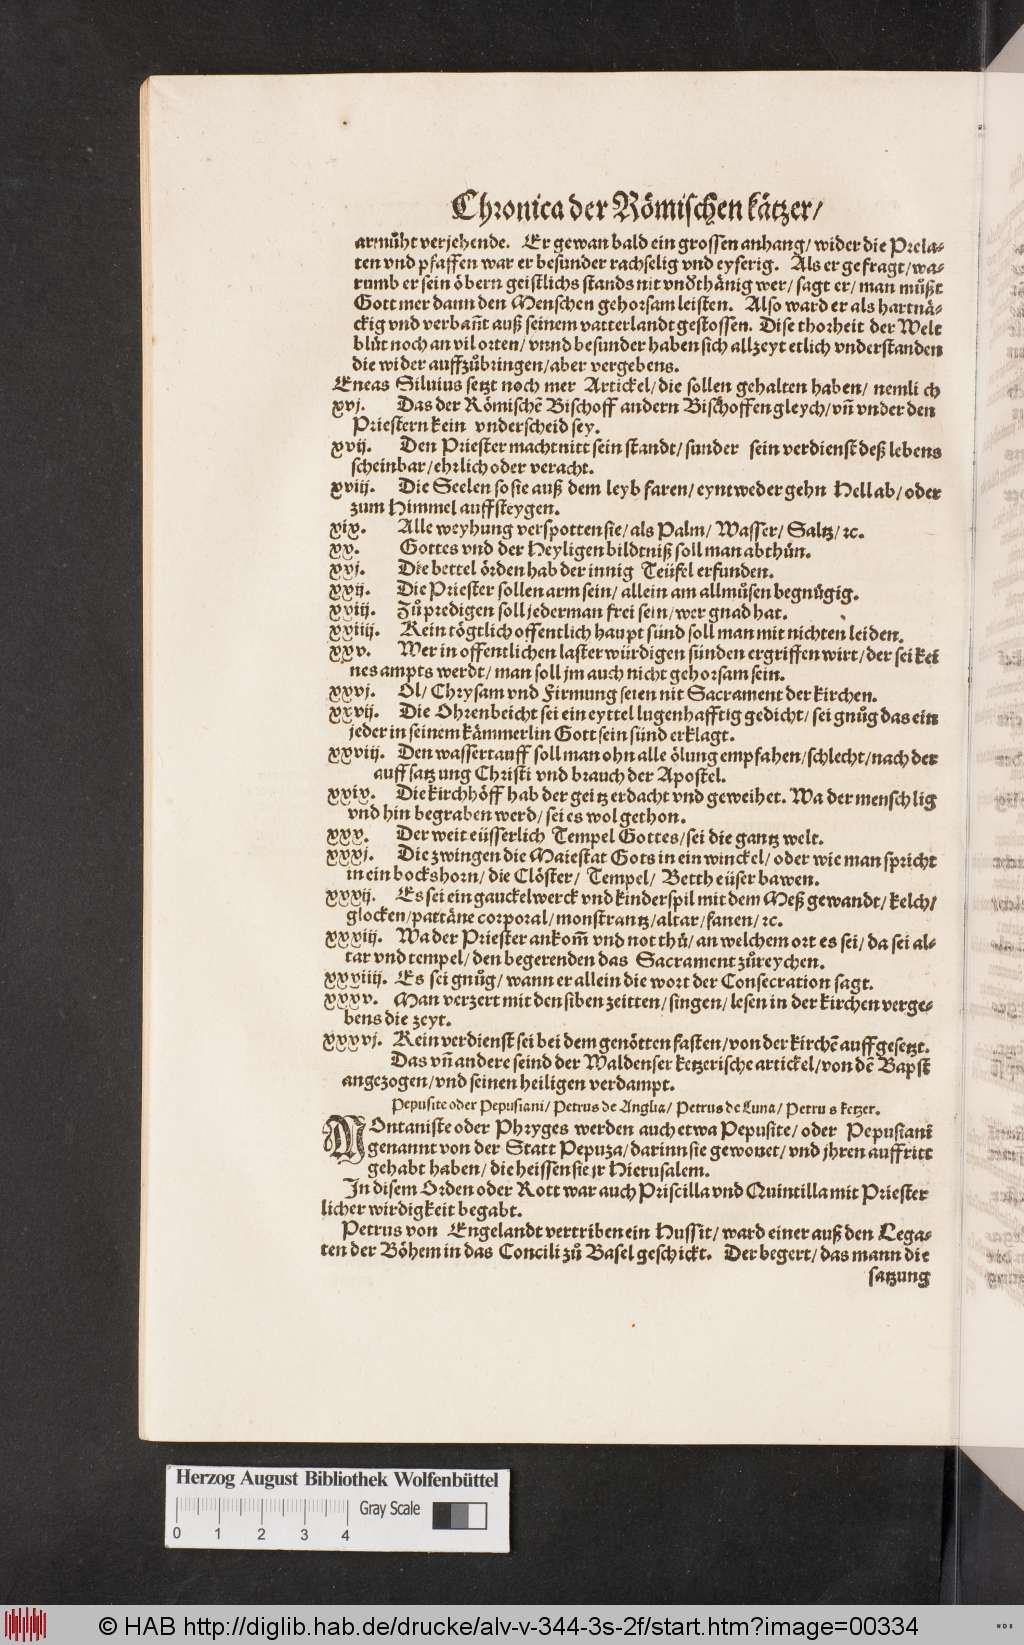 Chronica der Römischen kätzer/
armůht verjehende. Er gewan bald ein grossen anhang/ wider die Prela-
ten vnd pfaffen war er besunder rachselig vnd eyferig. Als er gefragt/ wa-
rumb er sein öbern geistlichs stands nit vnderthänig wer/ sagt er/ man můßt
Gott mer dann den Menschen gehorsam leisten. Also ward er als hartnä-
ckig vnd verbañt auß seinem vatterlandt gestossen. Dise thorheit der Welt
blůt noch an vil orten/ vnnd besunder haben sich allzeyt etlich vnderstanden
die wider auffzůbringen/ aber vergebens.
Eneas Siluius setzt noch mer Artickel/ die sollen gehalten haben/ nemlich
xvj. Das der Römischẽ Bischoff andern Bischoffen gleych/ vñ vnder den
Priestern kein vnderscheid sey.
xvij. Den Priester macht nitt sein standt/ sunder sein verdienst deß lebens
scheinbar/ ehrlich oder veracht.
xviij. Die Seelen so sie auß dem leyb faren/ eyntweder gehn Hell ab/ oder
zum Himmel auffsteygen.
xix. Alle weyhung verspotten sie/ als Palm/ Wasser/ Saltz/ ꝛc.
xx. Gottes vnd der Heyligen bildtniß soll man abthůn.
xxj. Die bettel örden hab der innig Teüfel erfunden.
xxij. Die Priester sollen arm sein/ allein am allmůsen begnügig.
xxiij. Zů predigen soll jederman frei sein/ wer gnad hat.
xxiiij. Kein tögtlich offentlich haupt sünd soll man mit nichten leiden.
xxv. Wer in offentlichen laster würdigen sünden ergriffen wirt/ der sei kei
nes ampts werdt/ man soll jm auch nicht gehorsam sein.
xxvj. Öl/ Chrysam vnd Firmung seien nit Sacrament der kirchen.
xxvij. Die Ohrenbeicht sei ein eyttel lugenhafftig gedicht/ sei gnůg das ein
jeder in seinem kämmerlin Gott sein sünd erklagt.
xxviij. Den wassertauff soll man ohn alle ölung empfahen/ schlecht/ nach der
auffsatzung Christi vnd brauch der Apostel.
xxix. Die kirchhöff hab der geitz erdacht vnd geweihet. Wa der mensch lig
vnd hin begraben werd/ sei es wol gethon.
xxx. Der weit eüsserlich Tempel Gottes/ sei die gantz welt.
xxxj. Die zwingen die Maiestat Gots in ein winckel/ oder wie man spricht
in ein bockshorn/ die Clöster/ Tempel/ Bettheüser bawen.
xxxij. Es sei ein gauckelwerck vnd kinderspil mit dem Meß gewandt/ kelch/
glocken/ pattäne corporal/ monstrantz/ altar/ fanen/ ꝛc.
xxxiij. Wa der Priester ankom̃ vnd not thů/ an welchem ort es sei/ da sei al-
tar vnd tempel/ den begerenden das Sacrament zůreychen.
xxxiiij. Es sei gnůg/ wann er allein die wort der Consecration sagt.
xxxv. Man verzert mit den siben zeitten/ singen/ lesen in der kirchen verge-
bens die zeyt.
xxxvj. Kein verdienst sei bei dem genötten fasten/ von der kirchẽ auffgesetzt.
Das vñ andere seind der Waldenser ketzerische artickel/ von dẽ Bapst
angezogen/ vnd seinen heiligen verdampt.
Pepusite oder Pepusiani/ Petrus de Anglia/ Petrus de Luna/ Petrus ketzer.
MOntaniste oder Phryges werden auch etwa Pepusite/ oder Pepusiani
genannt von der Statt Pepuza/ darinn sie gewonet/ vnd jhren auffritt
gehabt haben/ die heissen sie jr Hierusalem.
In disem Orden oder Rott war auch Priscilla vnd Quintilla mit Priester
licher wirdigkeit begabt.
Petrus von Engelandt vertriben ein Hussit/ ward einer auß den Lega-
ten der Böhem in das Concili zů Basel geschickt. Der begert/ das mann die
satzung
Herzog August Bibliothek Wolfenbüttel
Gray Scale
0 1 2 3 4
© HAB http://diglib.hab.de/drucke/alv-v-344-3s-2f/start.htm?image=00334